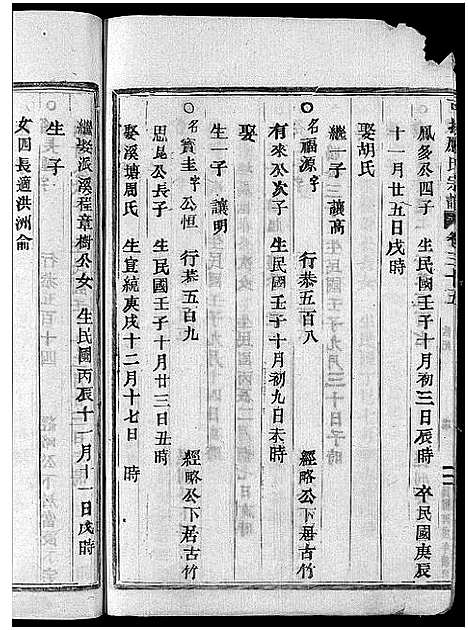 應氏宗譜 卷三十五
鳳多公四子 生民國壬子十月初三日辰時 卒民國庚辰
十一月廿五日戌時
娶胡氏
繼一子 讓高
名福源 字 行恭五百八 經略公下居古竹
有來公次子 生民國壬子十月初九日未時
娶
生一子 讓明
名寶圭 字公恒 行恭五百九 經略公下居古竹
思昆公長子 生民國壬子十月廿三日丑時
娶溪塘周氏 生宣統庚戌十二月十七日 時
繼娶派溪程章樹公女 生民國丙辰十一月十一日戌時
生 子
女四長適洪洲俞